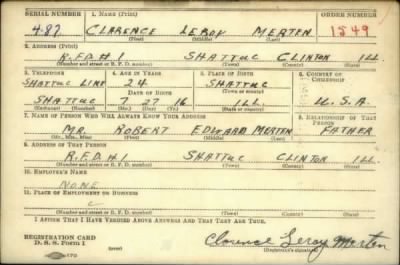 SERIAL NUMBER 1. NAME (Print) ORDER NUMBER
487 CLARENCE LEROY MERTEN 1549
(First) (Middle) (Last)
2. ADDRESS (Print)
R.F.D.#1 SHATTUC CLINTON ILL.
(Number and street or R. F. D. number) (Town) (County) (State)
3. TELEPHONE 4. AGE IN YEARS 5. PLACE OF BIRTH 6. COUNTRY OF CITIZENSHIP
SHATTUC LINE 24 SHATTUC
DATE OF BIRTH (Town or county)
SHATTUC 7 27 16 ILL. U.S.A.
(Exchange) (Number) (Mo.) (Day) (Yr.) (State or country)
7. NAME OF PERSON WHO WILL ALWAYS KNOW YOUR ADDRESS 8. RELATIONSHIP OF THAT PERSON
MR. ROBERT EDWARD MERTEN FATHER
(Mr., Mrs., Miss) (First) (Middle) (Last)
9. ADDRESS OF THAT PERSON
R.F.D.#1 SHATTUC CLINTON ILL.
(Number and street or R. F. D. number) (Town) (County) (State)
10. EMPLOYER'S NAME
NONE
11. PLACE OF EMPLOYMENT OR BUSINESS
(Number and street or R. F. D. number) (Town) (County) (State)
I AFFIRM THAT I HAVE VERIFIED ABOVE ANSWERS AND THAT THEY ARE TRUE.
REGISTRATION CARD
D. S. S. Form 1
Clarence Leroy Merten
(Registrant's signature)